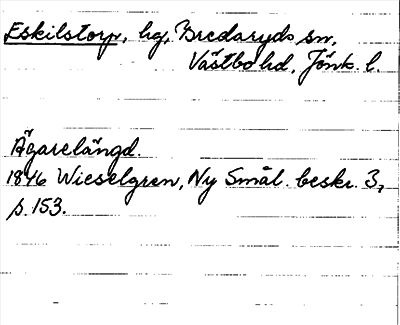 Eskilstorp, hg, Bredaryds sn,
Västbo hd, Jönk. l.
Ägarelängd.
1846 Wieselgren, Ny Smål. beskr. 3,
s. 153.